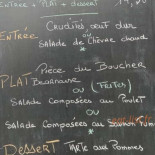 ENTRÉE + PLAT + DESSERT
CRUDITÉS, oeuf dur
ENTRÉE OU
SALADE de Chèvre chaud
*
PIÈCE du BOUCHER
PLAT Béarnaise (FRITES)
OU
SALADE Composées au Poulet
OU
SALADE Composées au Saumon Fumé
*
DESSERT TARTE aux Pommes